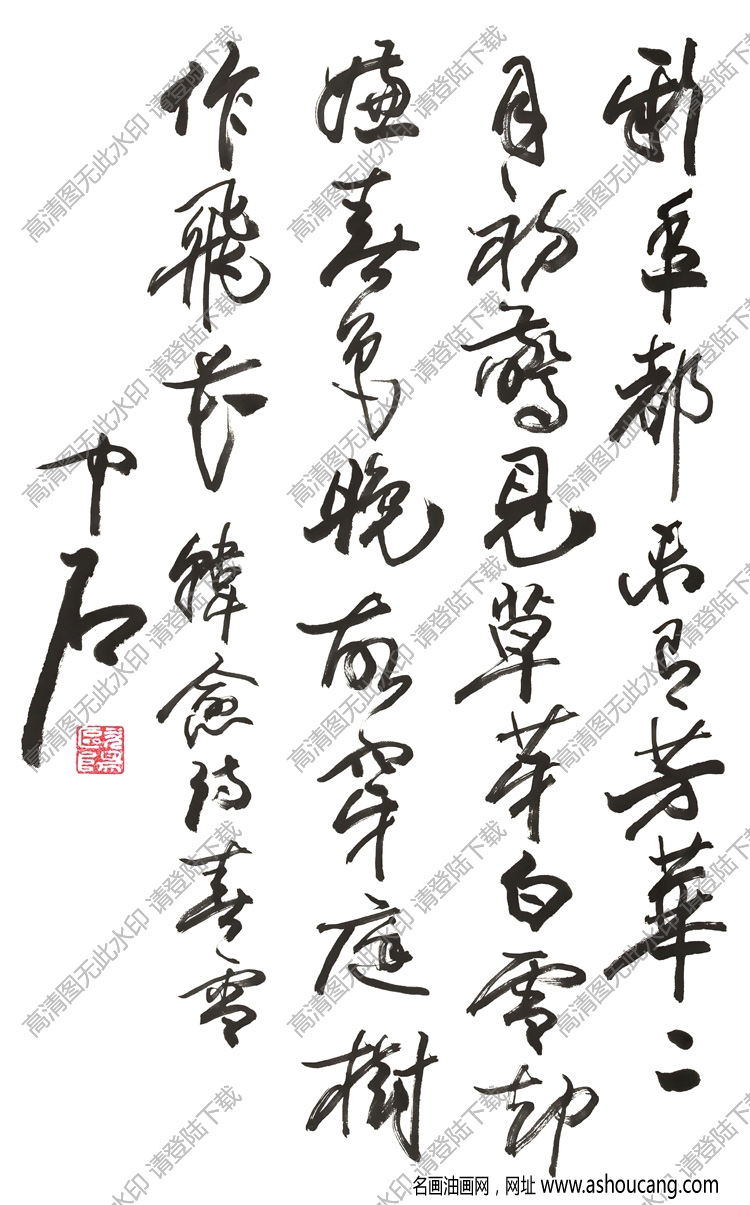 新年都未有芳華二
月初驚見草芽白雪却
嫌春色晚故穿庭樹
作飛花 韓愈詩春雪
中石
高清图无此水印 请登陆下载
名画油画网，网址 www.ashoucang.com